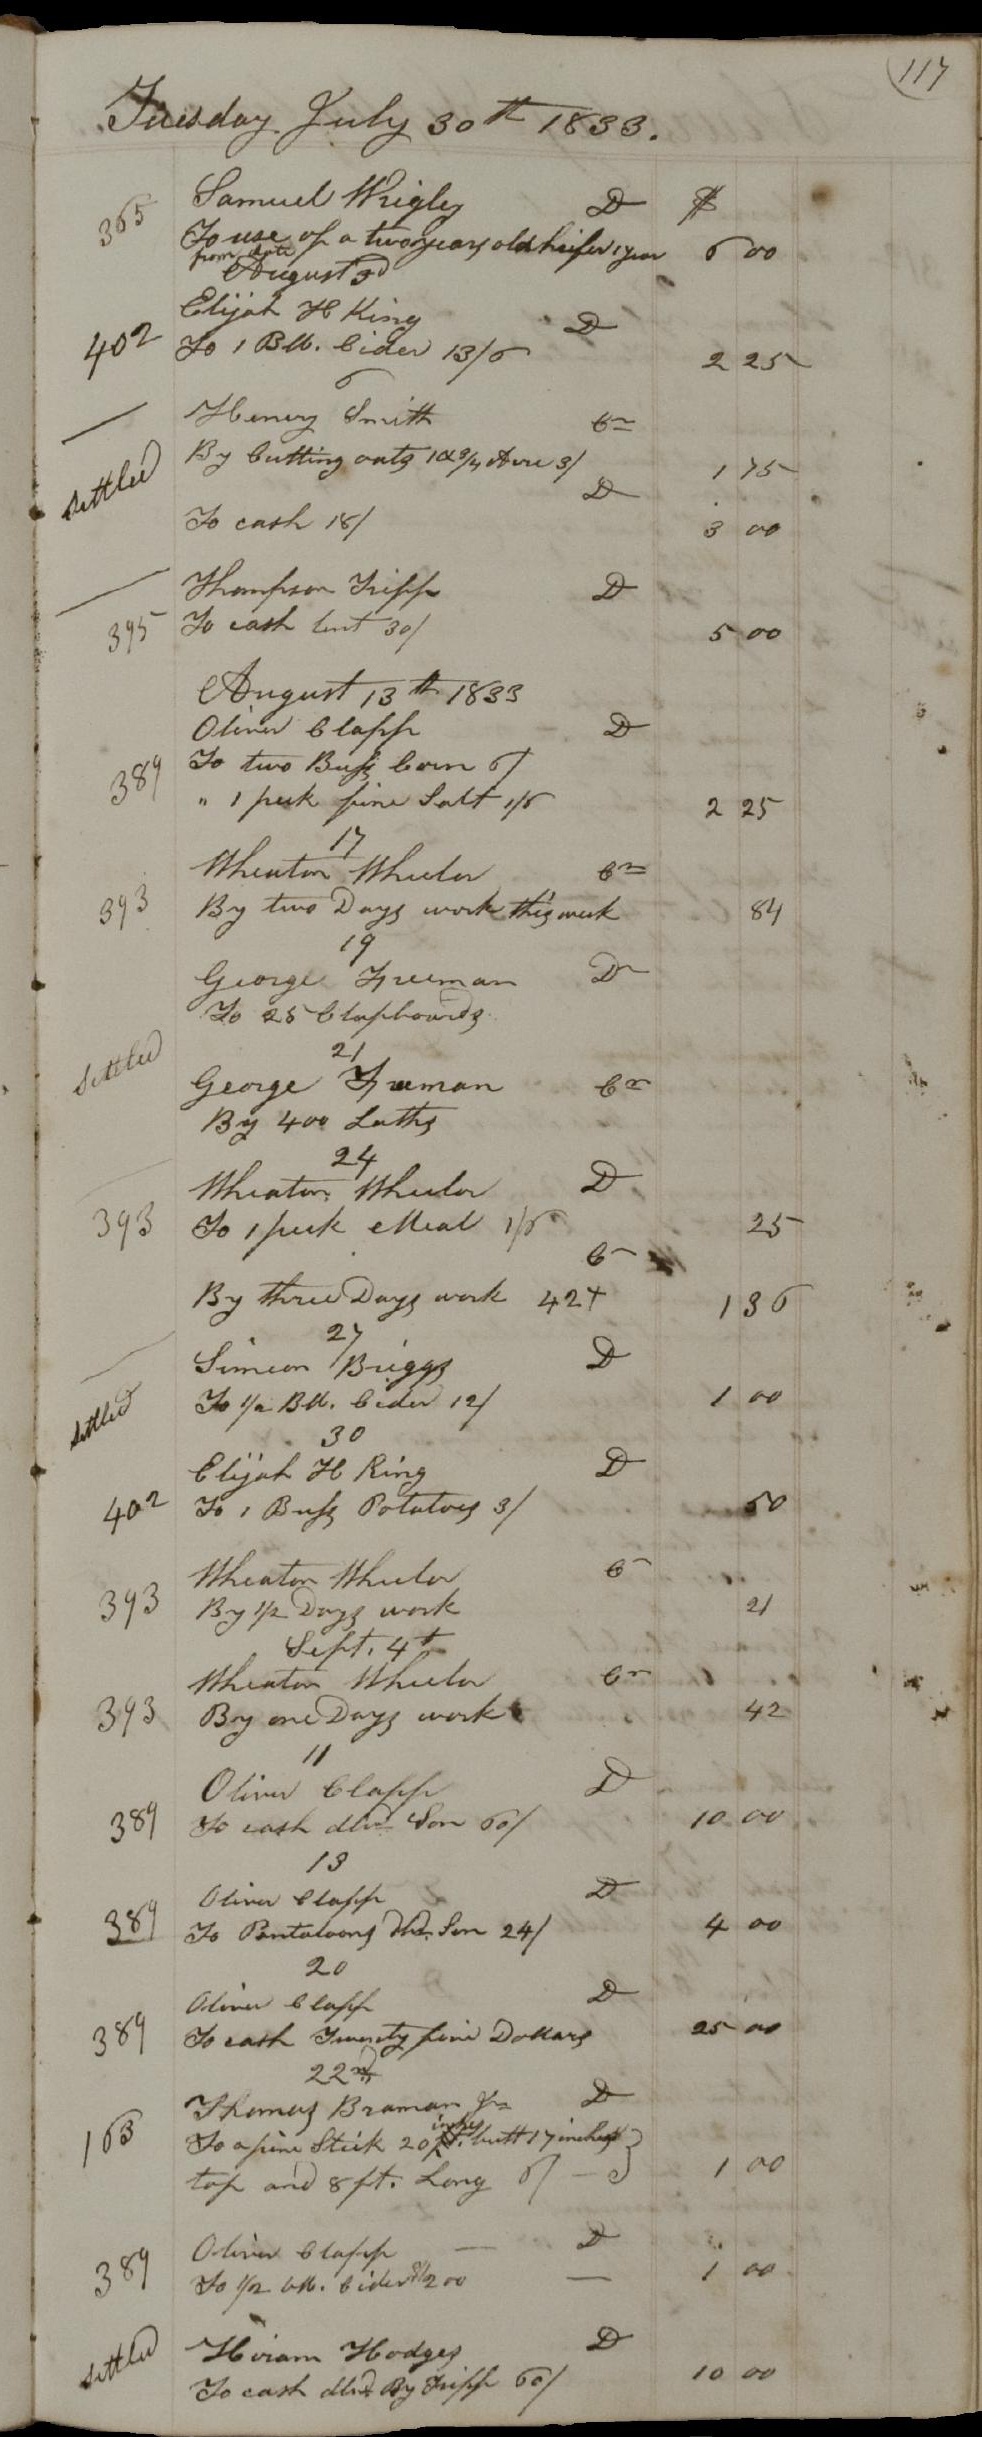 117
Tuesday July 30th 1833.
365 Samuel Wrigley D $
To use of a two years old heifer 1 year 6 00
from date
August 3d
Elijah H King D
402 To 1 Bbl. Cider 13/6 2 25
6
Henry Smith Cr
By Cutting oats 1 3/4 Acre 3/ 1 75
settled D
To cash 18/ 3 00
Thompson Tripp D
395 To cash lent 30/ 5 00
August 13th 1833
Oliver Clapp D
389 To two Bush Corn 6/
" 1 peck fine Salt 1/6 2 25
17
Wheaton Wheelor Cr
393 By two Days work this week 84
19
George Freeman Dr
To 25 Clapboards
settled 21
George Freeman Cr
By 400 Laths
24
Wheaton Wheelor D
393 To 1 peck Meal 1/6 25
Cr
By three Days work 42+ 1 36
27
Simeon Briggs D
settled To 1/2 Bbl. Cider 12/ 1 00
30
Elijah H King D
402 To 1 Bush Potatoes 3/ 50
Wheaton Wheelor Cr
393 By 1/2 Days work 21
Sept. 4th
Wheaton Wheelor Cr
393 By one Days work 42
11
Oliver Clapp D
389 To cash dld Son 60/ 10 00
13
Oliver Clapp D
389 To Pantaloons dld. Son 24/ 4 00
20
Oliver Clapp D
389 To cash Twenty five Dollars 25 00
22nd
Thomas Braman Jr D
163 To a pine Stick 20 inches butt 17 inches
top and 8 ft. Long 6/ 1 00
Oliver Clapp D
389 To 1/2 bbl. Cider 200 1 00
Hiram Hodges D
settled To cash dld By Tripp 60/ 10 00